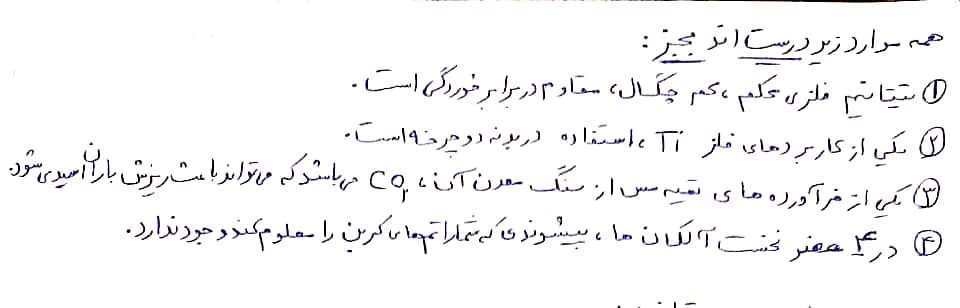 همه موارد زیر درست اند بجز :
① تیتانیم فلزی محکم ، کم چگال ، مقاوم در برابر خوردگی است .
② یکی از کاربردهای فلز Ti ، استفاده در بدنه دوچرخه است .
③ یکی از فرآورده های تهیه مس از سنگ معدن آن ، CO₂ می باشد که می تواند باعث ریزش باران اسیدی شود .
④ در ۴ عضو نخست آلکان ها ، پیشوندی که شمار اتم های کربن را معلوم کند وجود ندارد .